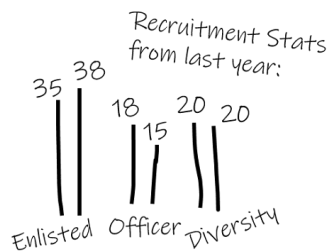 Recruitment Stats
from last year:
35 38
18 15
20 20
Enlisted Officer Diversity